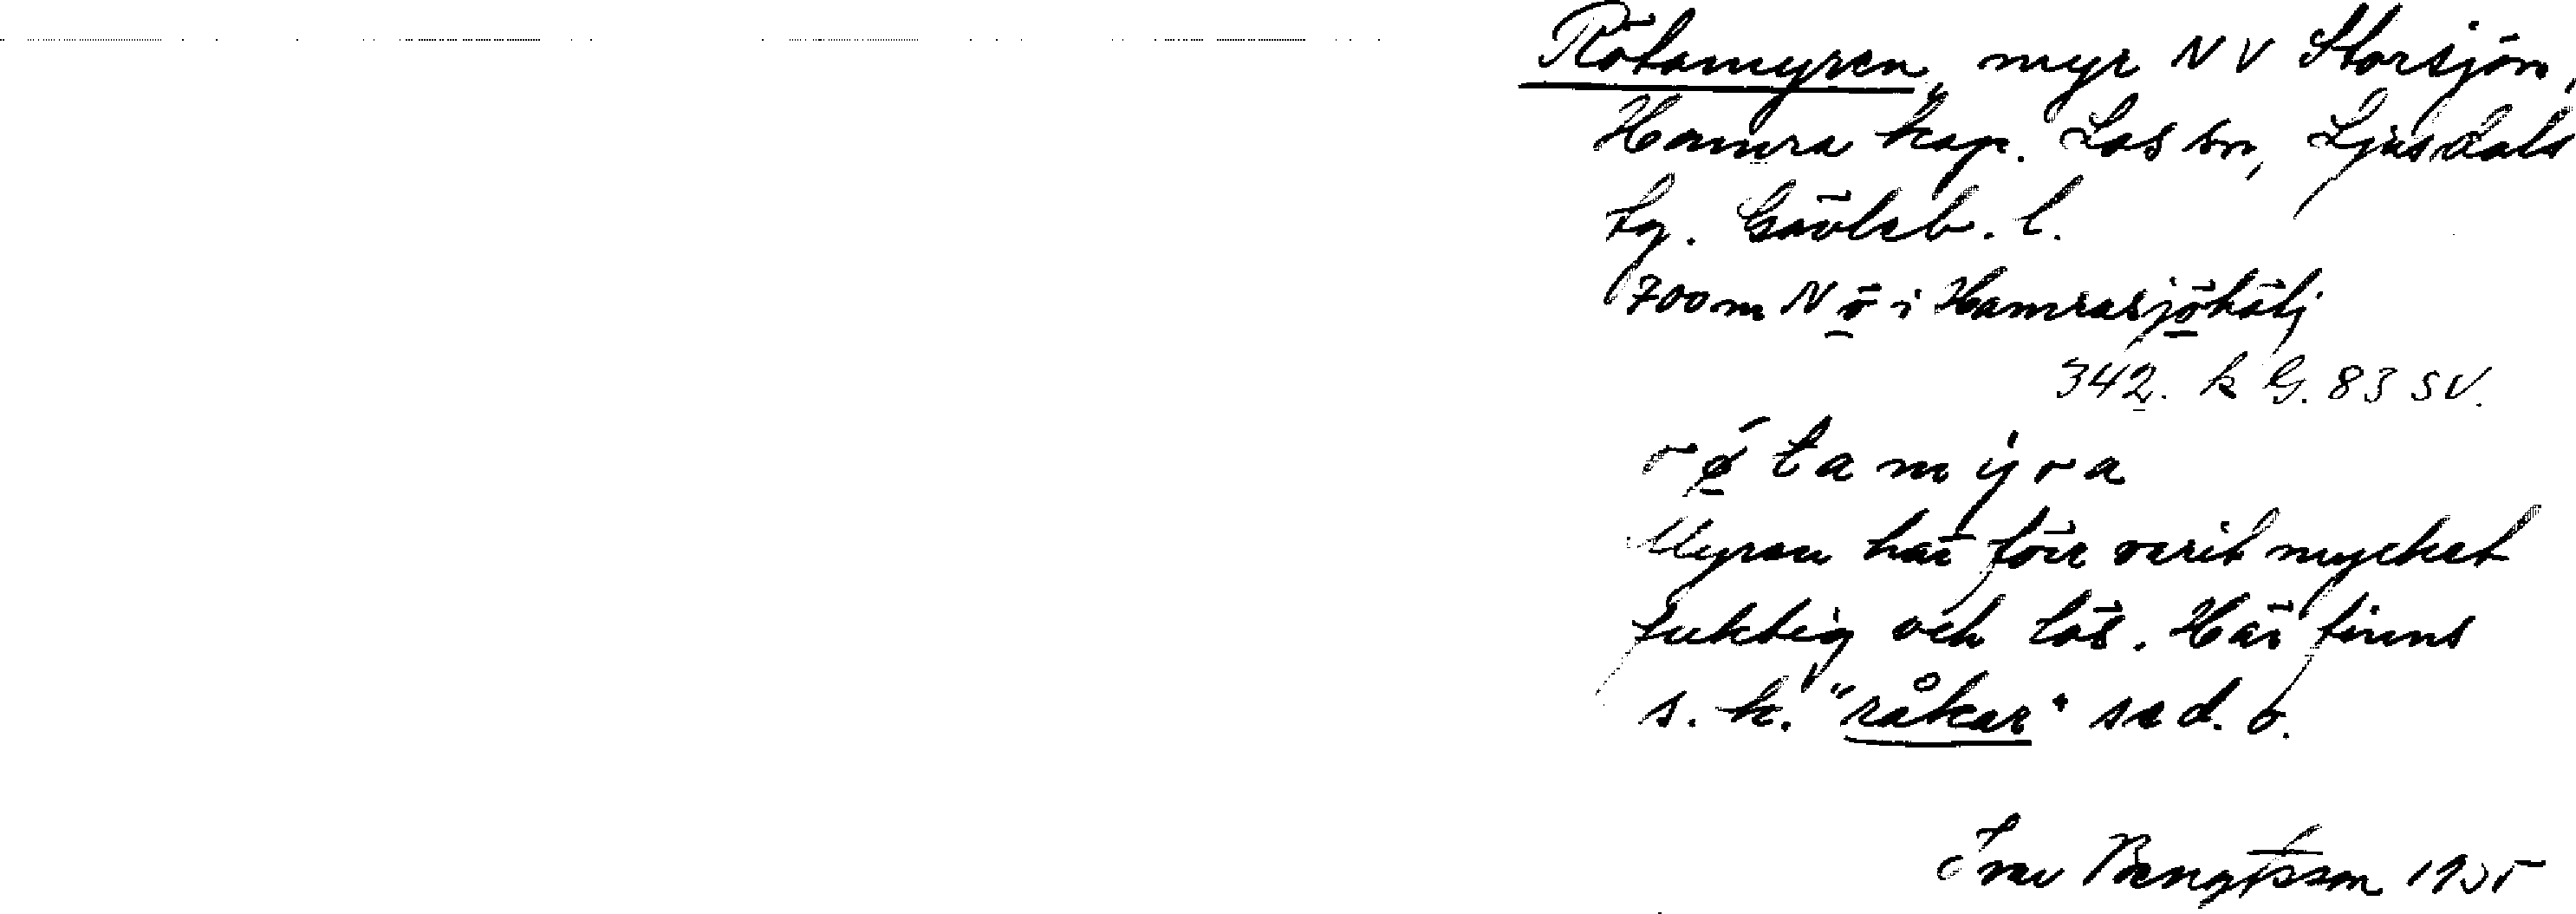 Rötamyren, myr NV Storsjön,
Hamra kap. Los sn, Ljusdals
tg. Gävleb. l.
700 m N ö i Hamrasjöhölj
342. k G. 83 SV.
rø̀tamy̍ra
Myren har förr varit mycket
fuktig och lös. Här finns
s. k. "råkar" se d. o.
Ivar Bengtsson 1935